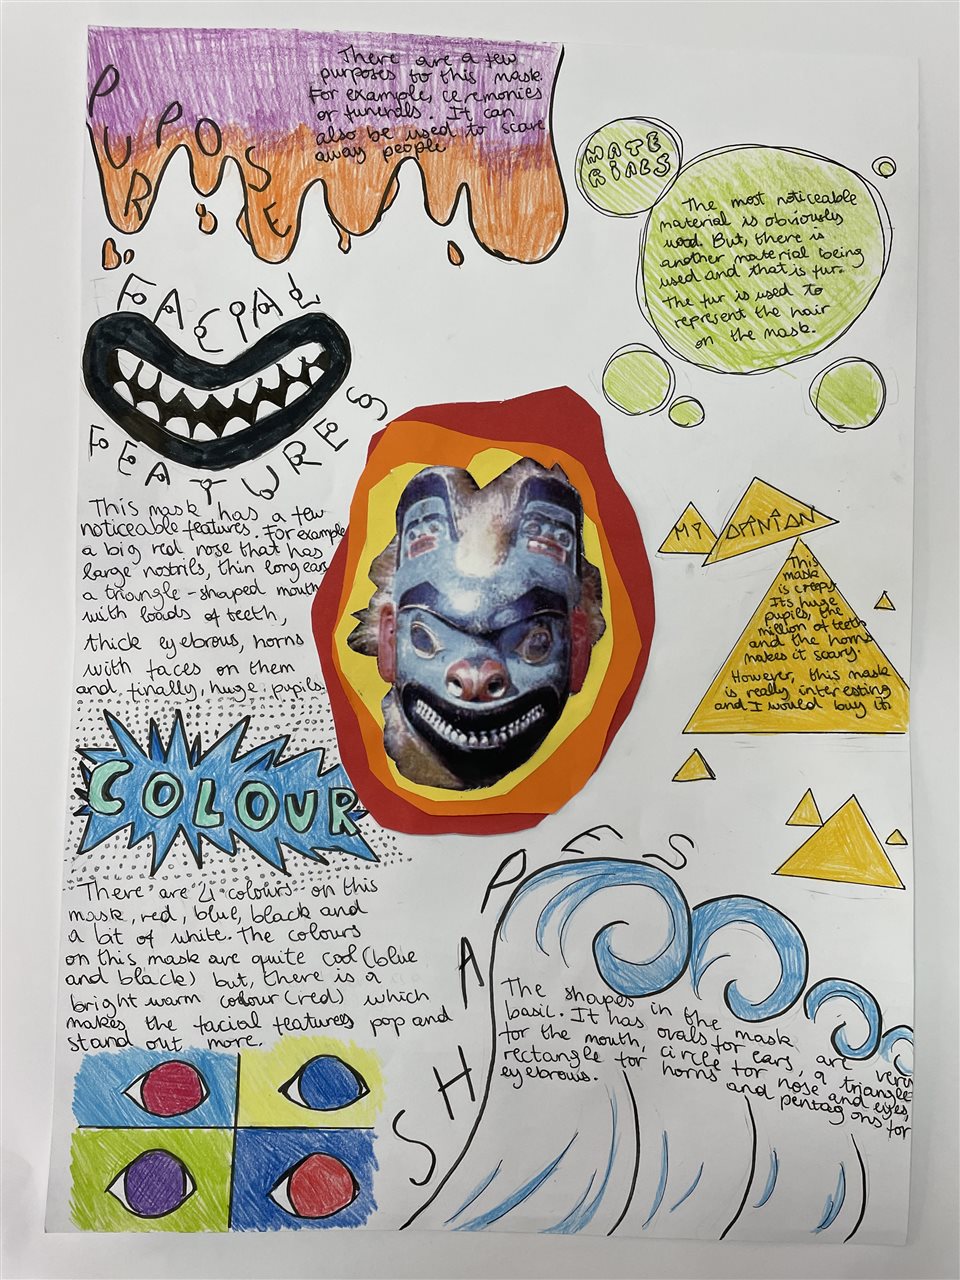 PURPOSE
There are a few
purposes to this mask
For example, ceremonies
or funerals. It can
also be used to scare
away people
MATE
RIALS
The most noticeable
material is obviously
wood. But, there is
another material being
used and that is fur.
The fur is used to
represent the hair
on the mask.
FACIAL
FEATURES
This mask has a few
noticeable features. For example
a big red nose that has
large nostrils, thin long ears
a triangle-shaped mouth
with loads of teeth,
thick eyebrows, horns
with faces on them
and finally, huge pupils.
MY OPINION
This
mask
is creepy.
Its huge
pupils, the
million of teeth
and the horns
makes it scary.
However, this mask
is really interesting
and I would buy it.
COLOUR
There are 4 colours on this
mask, red, blue, black and
a bit of white. The colours
on this mask are quite cool (blue
and black) but, there is a
bright warm colour (red) which
makes the facial features pop and
stand out more.
SHAPES
The shapes in the mask are very
basil. It has ovals for ears, a triangle
for the mouth, circle for nose and eyes,
rectangle for horns and pentagons for
eyebrows.